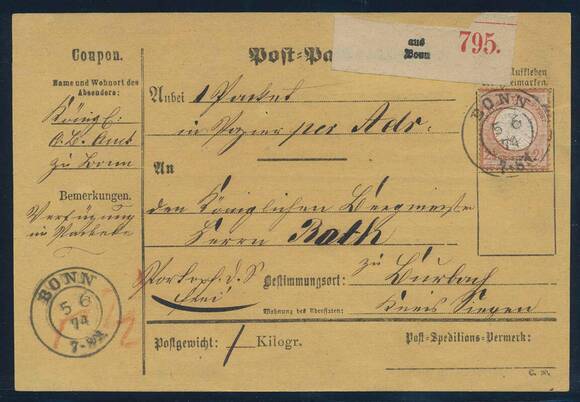 Coupon.
Name und Wohnort des
Absenders:
Königl:
O.B. Amt
zu Bonn
Bemerkungen.
Verfügung
in Packete
BONN
5 6
74
Post-Pa
aus
Bonn
795.
Aufkleben
Anbei 1 Packet
in Papier per Adr.
BONN
5 6
74
An
den Königlichen Bergmeister
Herrn Roth
zu
frei
Bestimmungsort: Burbach
Wohnung des Adressaten: Kreis Siegen
Postgewicht: 1 Kilogr.
Post-Speditions-Vermerk: